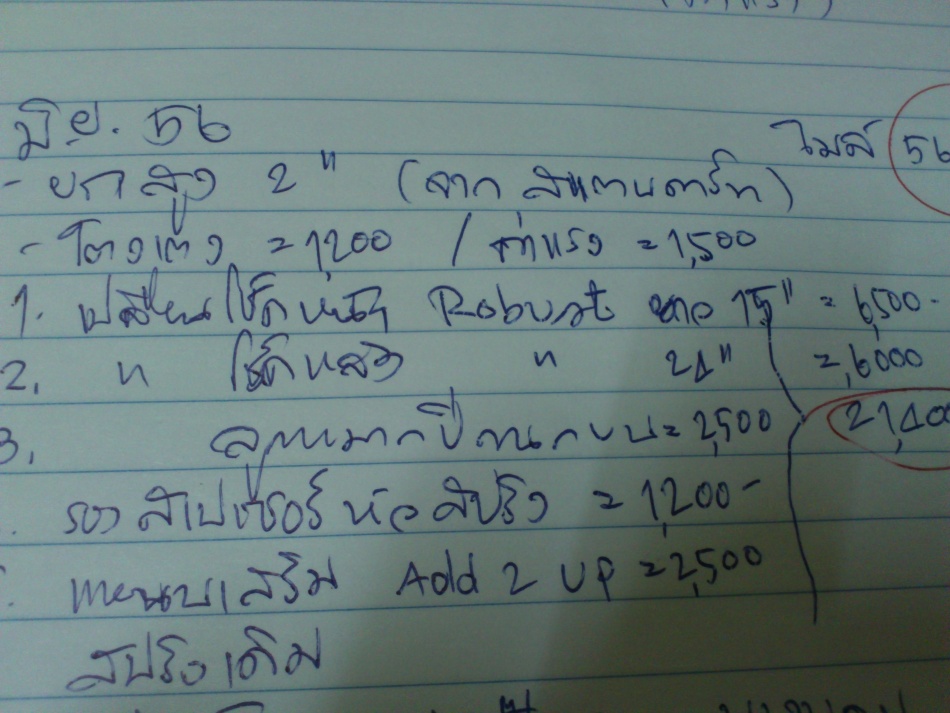 มิย. 56
ไมล์ 56
- ยกสูง 2" (จาก สแตนดาร์ท)
- โตงเตง = 1,200 / ค่าแรง = 1,500
1. เปลี่ยนโช๊คหน้า Robust ยาว 15" = 6,500-
2. " โช๊คหลัง " 21" = 6,000
3. ลูกหมากปีกนกบน = 2,500 21,400
รองสเปเซอร์หัวสปริง = 1,200-
แหนบเสริม Add 2 UP = 2,500
สปริงเดิม